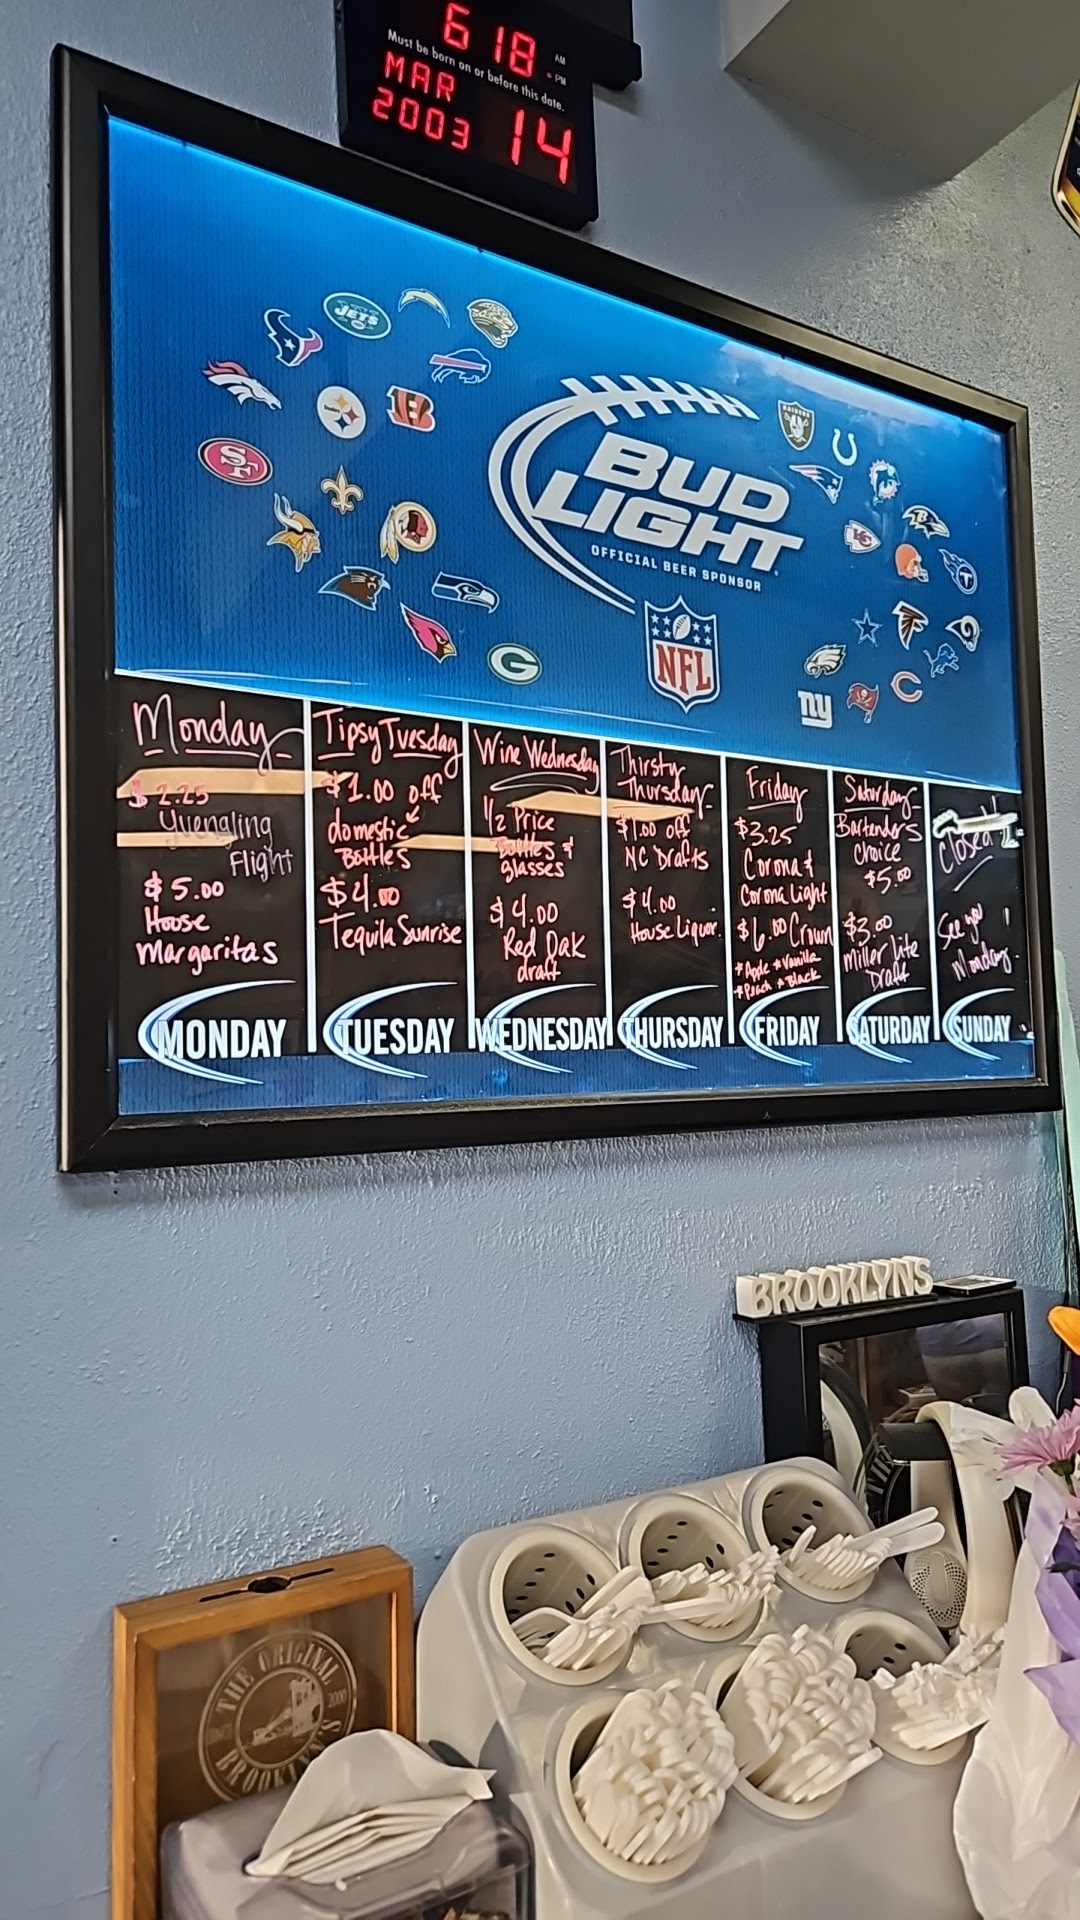 6 18 AM
PM
Must be born on or before this date.
MAR 14
2003
JETS
RAIDERS
SF
KC
G
ny
C
BUD
LIGHT
OFFICIAL BEER SPONSOR
NFL
Monday
$ 2.25
Yuengling
Flight
$5.00
House
Margaritas
MONDAY
Tipsy Tuesday
$1.00 off
domestic
Bottles
$4.00
Tequila Sunrise
TUESDAY
Wine Wednesday
1/2 Price
Bottles &
glasses
$4.00
Red Oak
draft
WEDNESDAY
Thirsty
Thursday
$1.00 off
NC Drafts
$4.00
House Liquor
THURSDAY
Friday
$3.25
Corona &
Corona Light
$6.00 Crown
*Apple *Vanilla
*Peach *Black
FRIDAY
Saturday
Bartenders
Choice
$5.00
$3.00
Miller Lite
Draft
SATURDAY
Closed
See you
Monday
SUNDAY
BROOKLYNS
THE ORIGINAL
2000
BROOKLYN'S